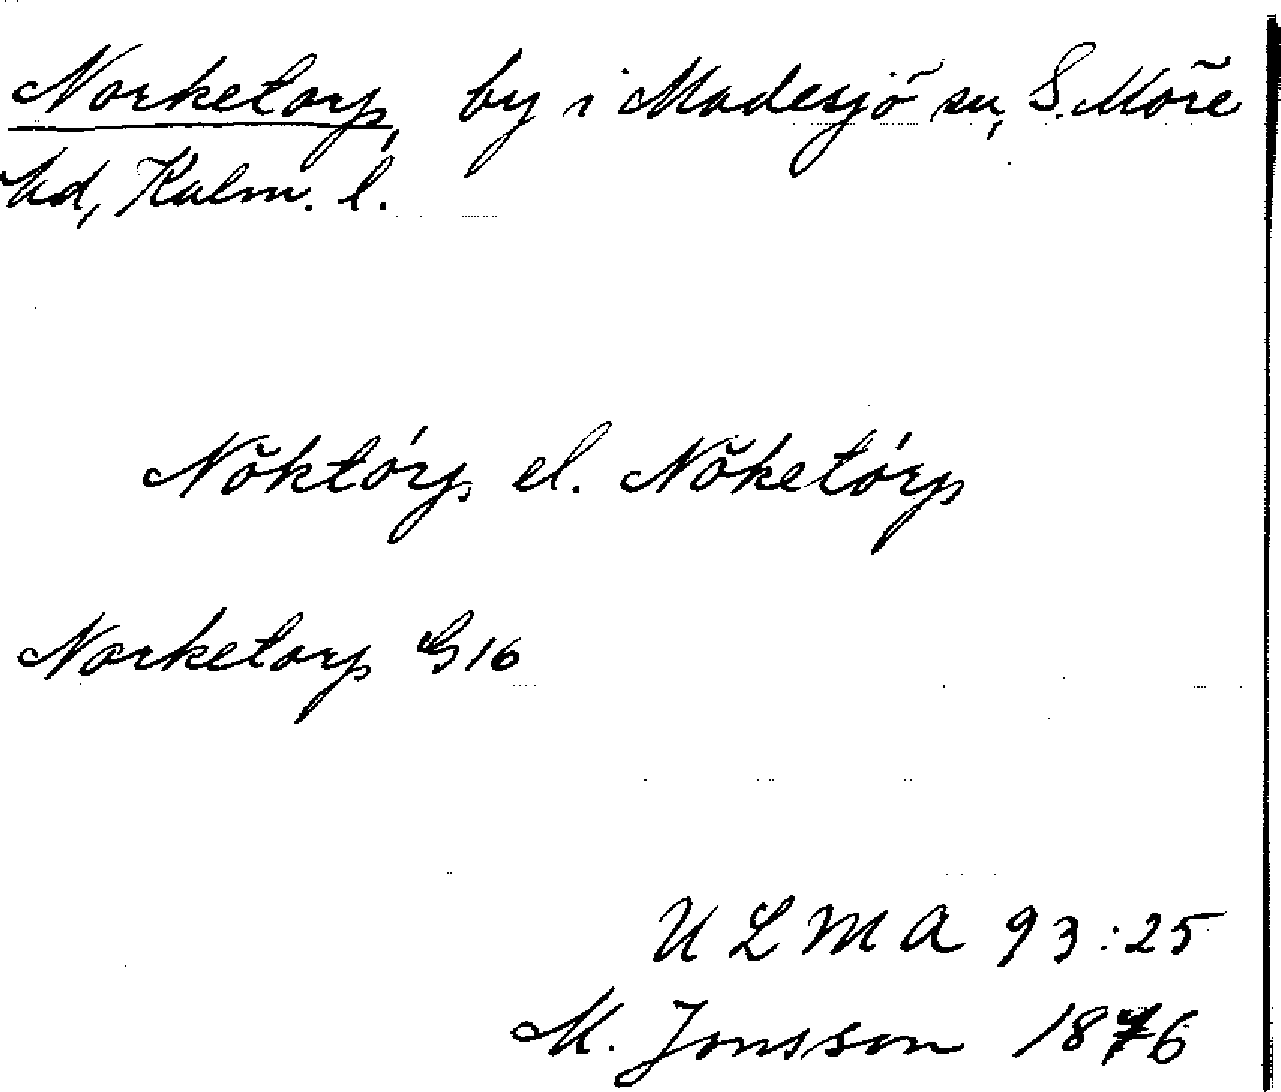 Norketorp, by i Madesjö sn, S. Möre
hd, Kalm. l.
Nöktórp el. Nöketórp
Norketorp G16
ULMA 93:25
M. Jonsson 1876